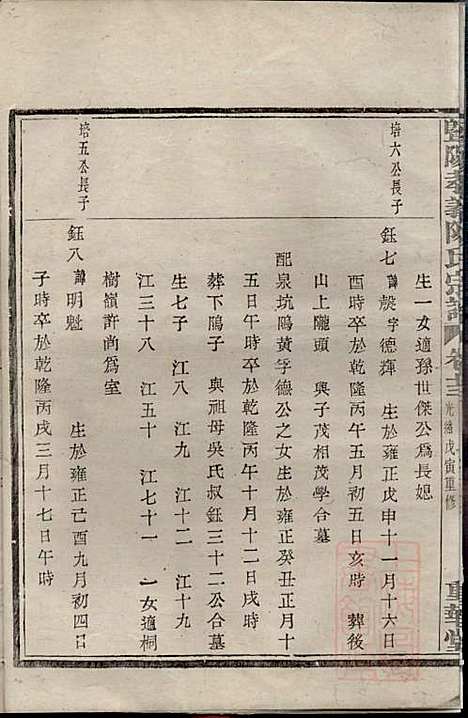 暨陽孝義陳氏宗譜 卷十三 光緒戊寅重修 重華堂
生一女適孫世傑公爲長媳
培六公長子
鈺七 諱榖字德輝 生於雍正戊申十一月十六日
酉時卒於乾隆丙午五月初五日亥時 葬後
山上隴頭 與子茂相茂學合墓
配泉坑鴊黃字德公之女生於雍正癸丑正月十
五日午時卒於乾隆丙午十月十二日戌時
葬下鴊子 與祖母吳氏叔鈺三十二公合墓
生七子 江八 江九 江十二 江十九
江三十八 江五十 江七十一 一女適桐
樹嶺許尚爲室
培五公長子
鈺八 諱明魁 生於雍正己酉九月初四日
子時卒於乾隆丙戌三月十七日午時